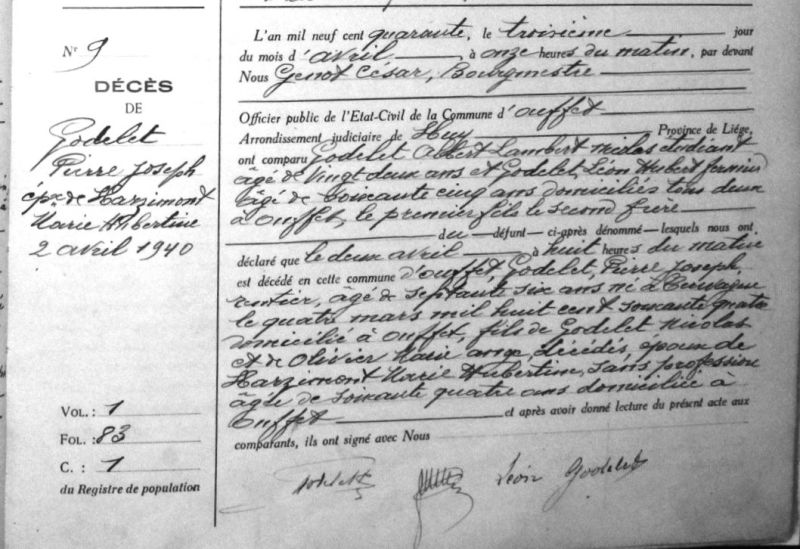 Nr 9
DÉCÈS
DE
Godelet
Pierre Joseph
epx de Harzimont
Marie Hubertine
2 avril 1940
VOL. : 1
FOL. : 83
C. : 1
du Registre de population
L'an mil neuf cent quarante, le troisième jour
du mois d'avril, à onze heures du matin, par devant
Nous Genot César, Bourgmestre
Officier public de l'Etat-Civil de la Commune d'Ouffet
Arrondissement judiciaire de Huy Province de Liége,
ont comparu Godelet Albert Lambert Nicolas étudiant
âgé de vingt deux ans et Godelet, Léon Hubert fermier
âgé de soixante cinq ans domiciliés tous deux
à Ouffet, le premier fils le second frère
du —défunt— ci-après dénommé —lesquels nous ont
déclaré que le deux avril à huit heures du matin
est décédé en cette commune d'Ouffet, Godelet, Pierre Joseph,
rentier, âgé de septante six ans né à
le quatre mars mil huit cent soixante quatre
domicilié à Ouffet, fils de Godelet Nicolas
et de Olivier Marie ange, décédés, epoux de
Harzimont Marie Hubertine, sans profession
âgée de soixante quatre ans domiciliée à
Ouffet et après avoir donné lecture du présent acte aux
comparants, ils ont signé avec Nous
Godelet
Léon Godelet